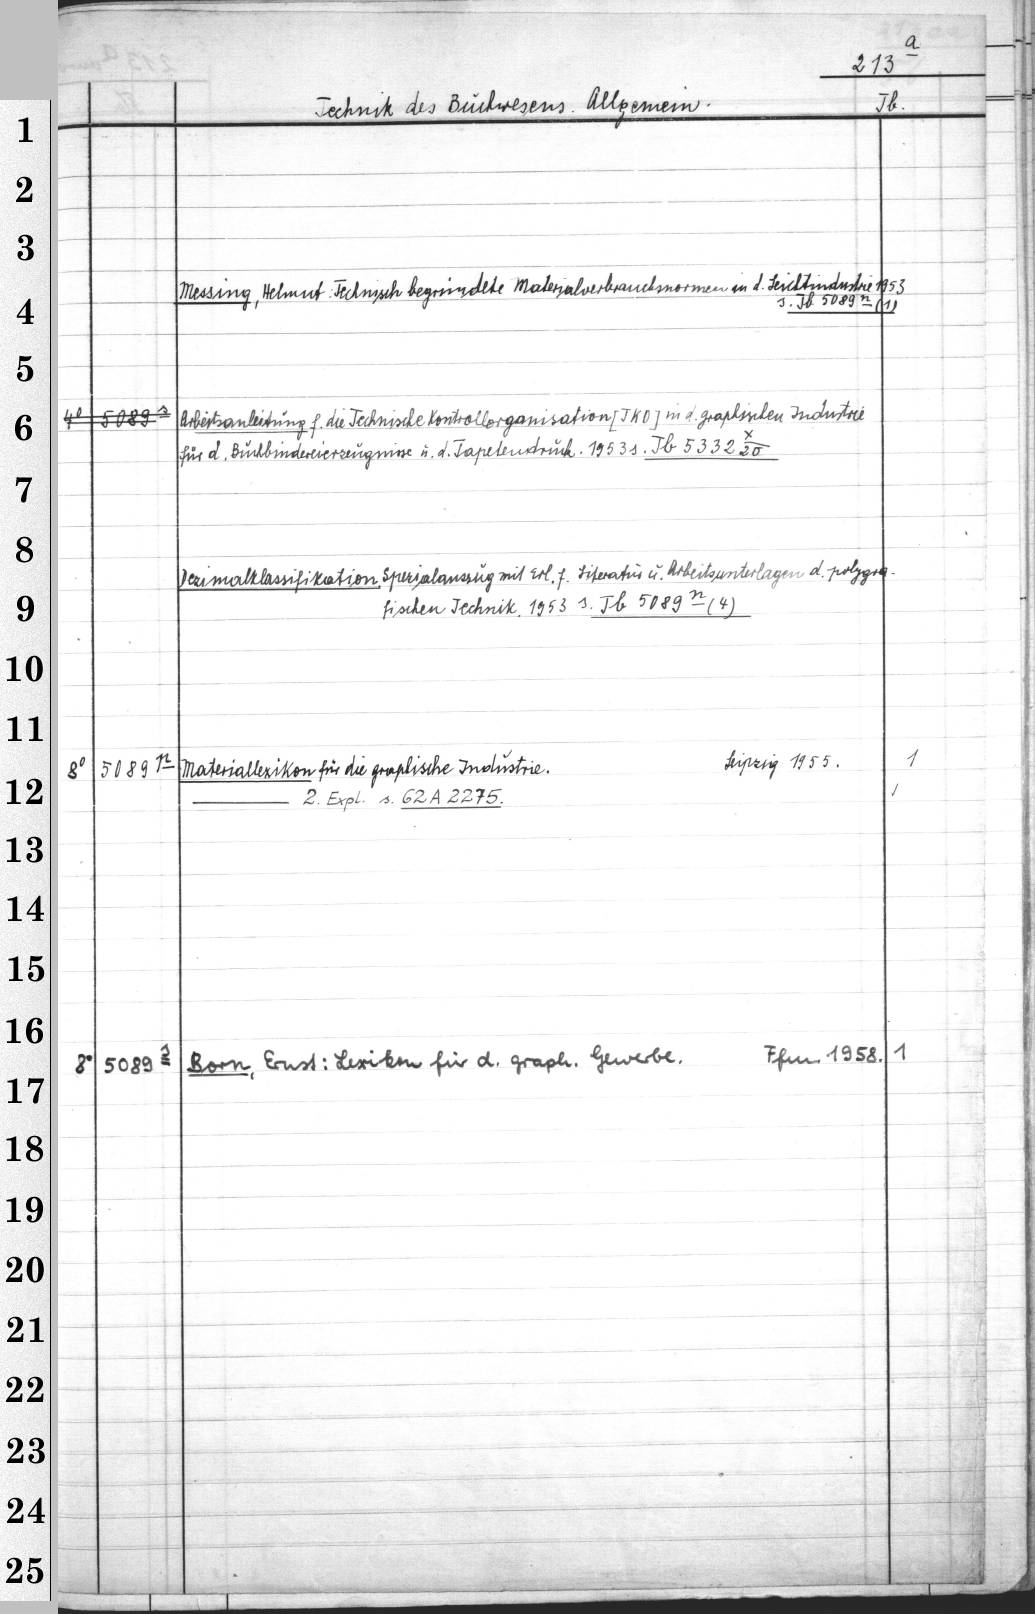 213 a
Technik des Buchwesens. Allgemein. Tb.
1
2
3
Messing, Helmut: Technisch begründete Materialverbrauchsnormen in d. Leichtindustrie 1953
s. Tb 5089 n (1)
4
5
4° 5089 s Arbeitsanleitung f. die Technische Kontrollorganisation [TKO] in d. graphischen Industrie
6
für d. Buchbindereierzeugnisse u. d. Tapetendruck. 1953 s. Tb 5332 x/20
7
8
Dezimalklassifikation, Spezialauszug mit Erl. f. Literatur u. Arbeitsunterlagen d. polygra-
9
fischen Technik. 1953 s. Tb 5089 n (4)
10
11
8° 5089 n Materiallexikon für die graphische Industrie. Leipzig 1955. 1
12
2. Expl. s. 62 A 2275.
13
14
15
16
8° 5089 Born, Ernst: Lexikon für d. graph. Gewerbe. Ffm. 1958. 1
17
18
19
20
21
22
23
24
25